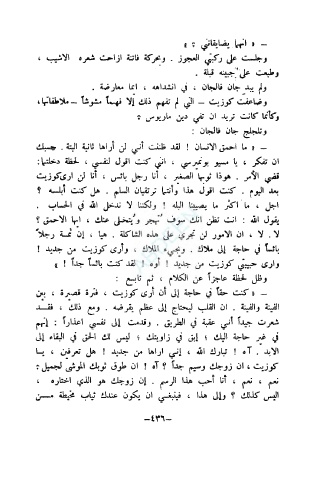 ـ « انهما يضايقاني ؟ »
وجلست على ركبتي العجوز . وبحركة فاتنة ازاحت شعره الاشيب ،
وطبعت على جبينه قبلة .
ولم يبد جان فالجان ، في انشداهه ، ايما معارضة .
وضاعفت كوزيت ـ التي لم تفهم ذلك إلا فهماً مشوشاً ـ ملاطفاتها،
وكأنما كانت تريد ان تفي دين ماريوس .
وتلجلج جان فالجان :
ـ « ما احمق الانسان ! لقد ظننت أنني لن أراها ثانية البتة . حسبك
ان تفكر ، يا مسيو بونميرسي ، اني كنت اقول لنفسي ، لحظة دخلتما:
قضي الأمر . هوذا ثوبها الصغير ، أنا رجل بائس ، أنا لن ارى كوزيت
بعد اليوم . كنت اقول هذا وأنتما ترتقيان السلم . هل كنت أبله ؟
اجل ، ما اكثر ما يصيبنا البله ! ولكننا لا ندخل الله في الحساب .
يقول الله : انت تظن انك سوف تُهجر ويُتخلى عنك ، ايها الاحمق ؟
لا . لا ، ان الامور لن تجري على هذه الشاكلة . هيا ، إن ثمة رجلاً
بائساً في حاجة إلى ملاك . ويجيء الملاك ، وأرى كوزيت من جديد !
وارى حبيبتي كوزيت من جديد ! أوه ! لقد كنت بائساً جداً ! »
وظل لحظة عاجزاً عن الكلام ، ثم تابع :
ـ « كنت حقاً في حاجة إلى أن أرى كوزيت ، فترة قصيرة ، بين
الفينة والفينة . ان القلب ليحتاج إلى عظم يقرضه . ومع ذلك ، فقـد
شعرت جيداً أني عقبة في الطريق . وقدمت إلى نفسي اعذاراً : إنهم
في غير حاجة اليك ؛ إبق في زاويتك ؛ ليس لك الحق في البقاء إلى
الابد . آه ! تبارك الله ، إني اراها من جديد ! هل تعرفين ، يا
كوزيت، ان زوجك وسيم جداً ؟ آه ! ان طوق ثوبك الموشّى لجميل.
نعم ، نعم ، أنا أحب هذا الرسم . إن زوجك هو الذي اختاره ،
اليس كذلك ؟ وإلى هذا ، فينبغي ان يكون عندك ثياب مخيطة مسن
ـ٤٣٦ـ